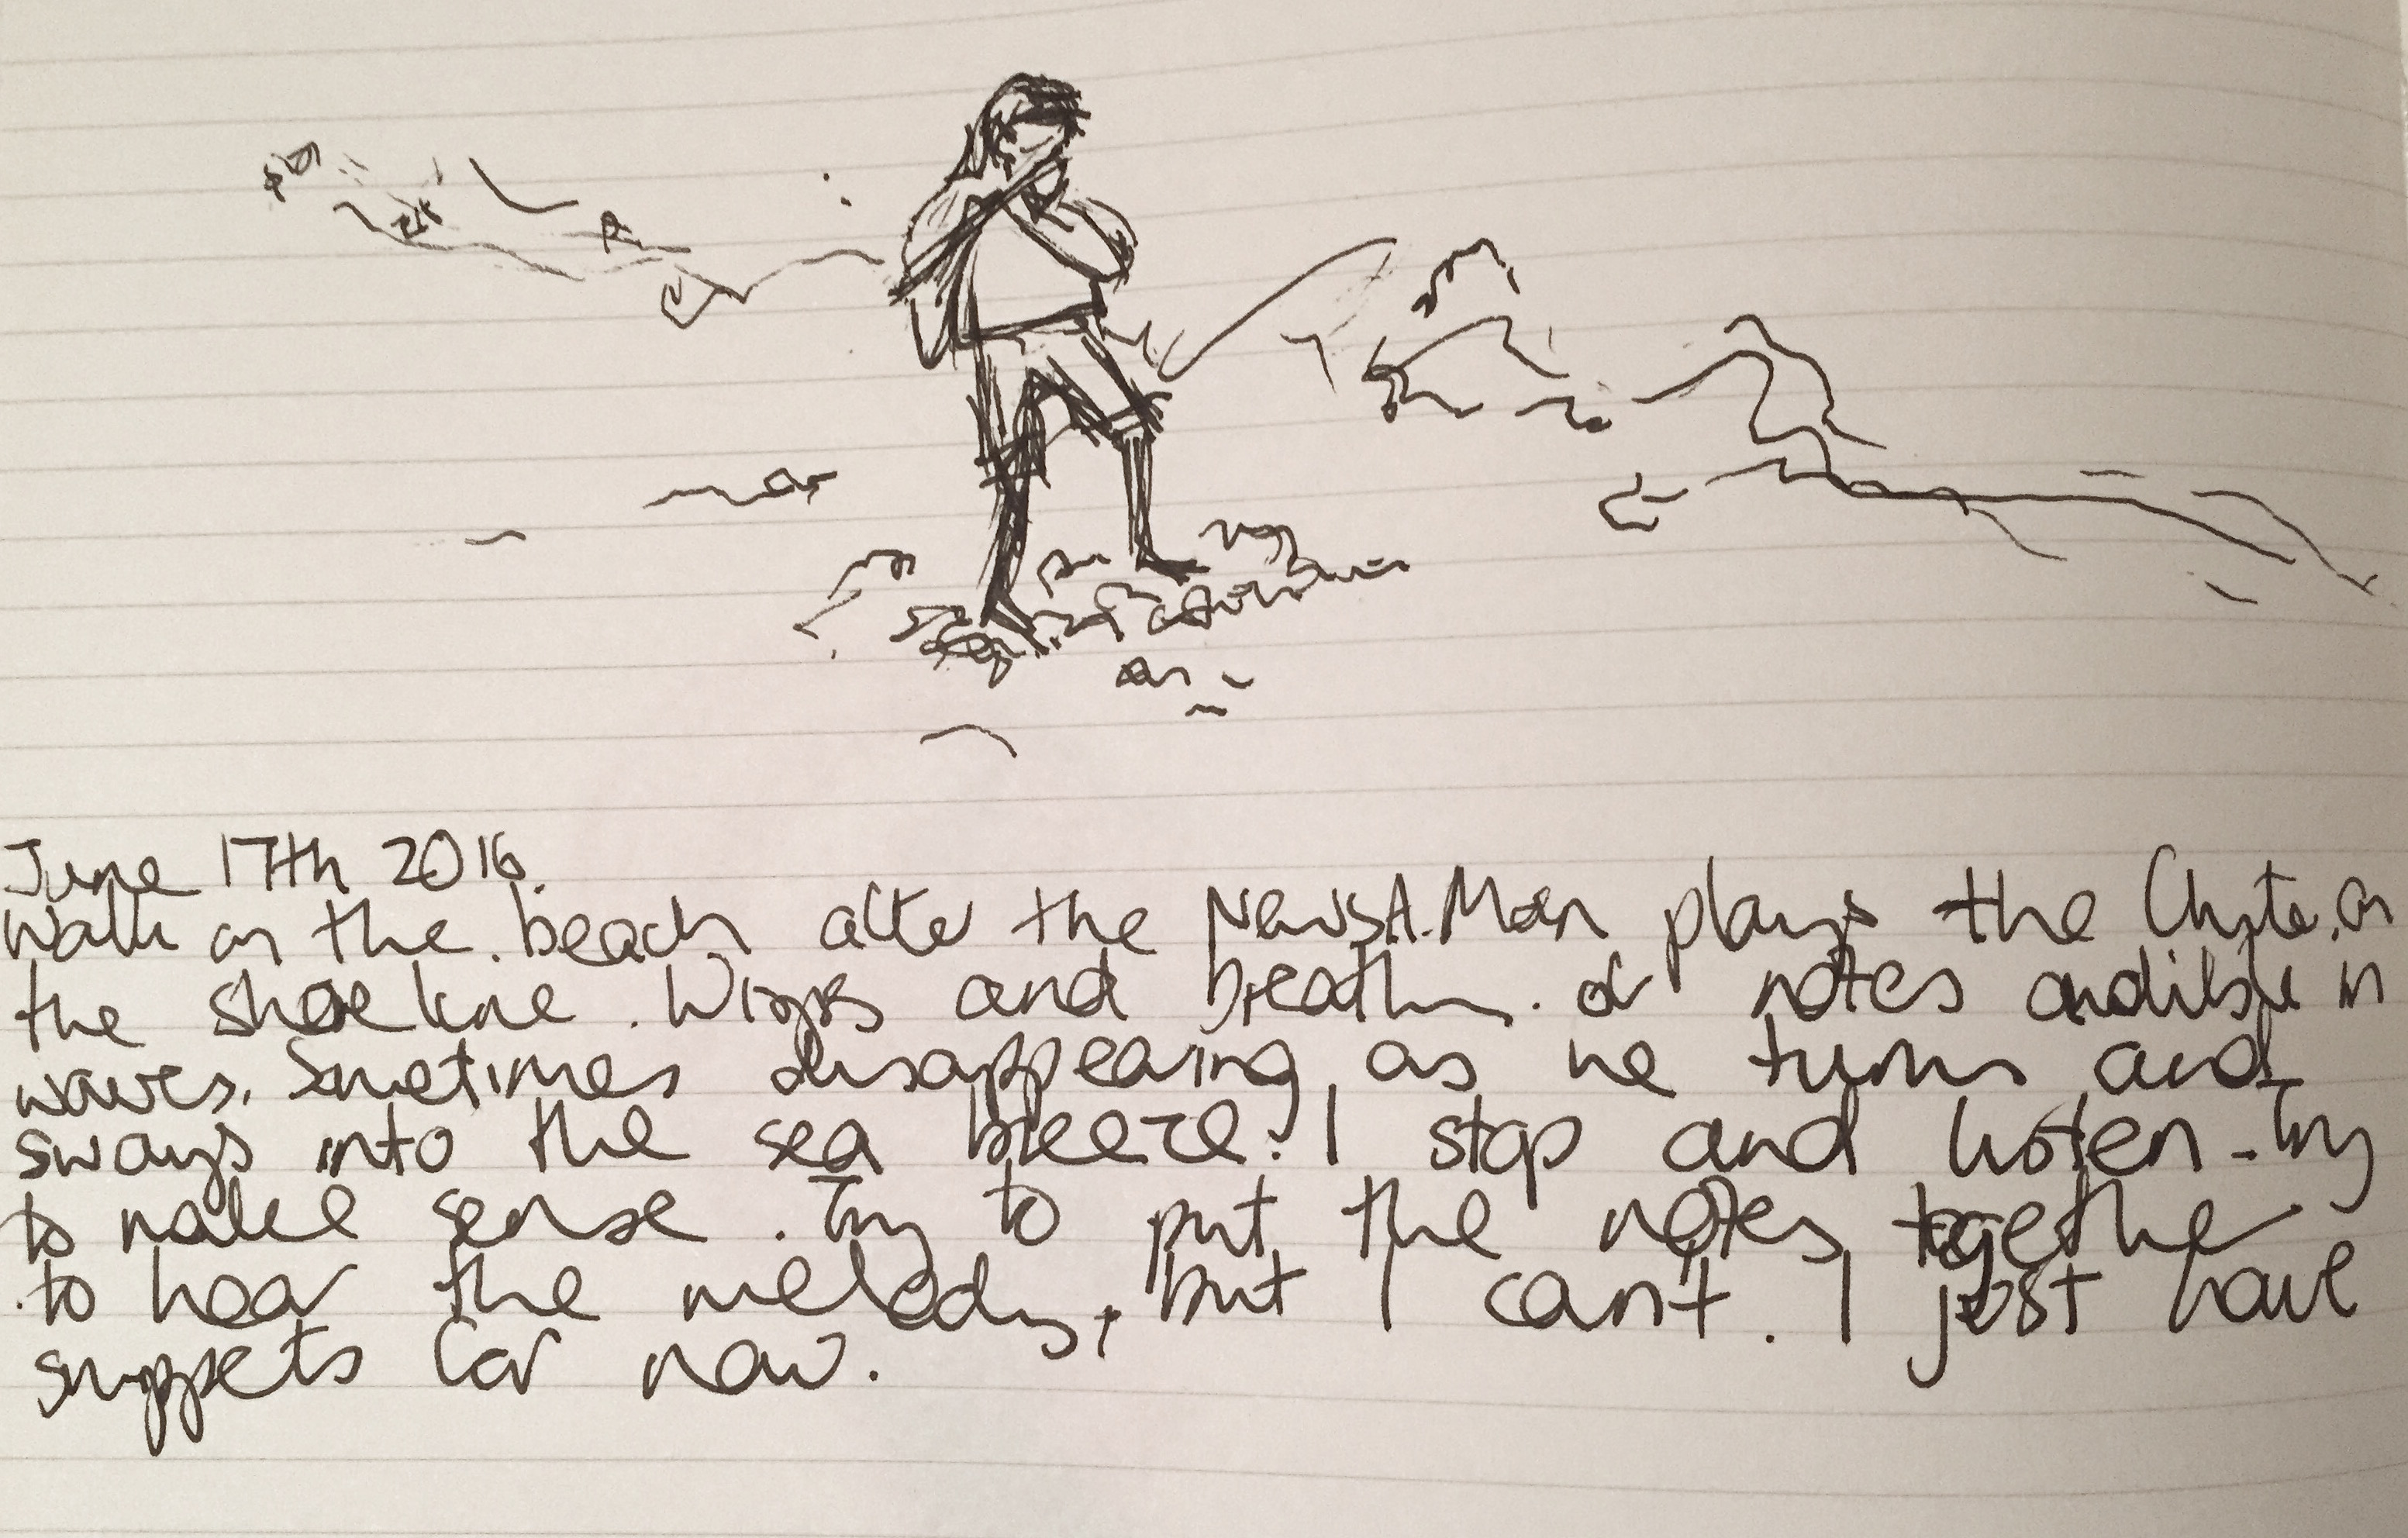 June 17th 2016.
Walk on the beach after the News. A Man plays the flute on
the shoreline. and breath. of notes audible in
waves. Sometimes disappearing, as he turns and
sways into the sea breeze. I stop and listen - Try
to make sense. Try to put the notes together
to hear the melody, but I can't. I just have
snippets for now.